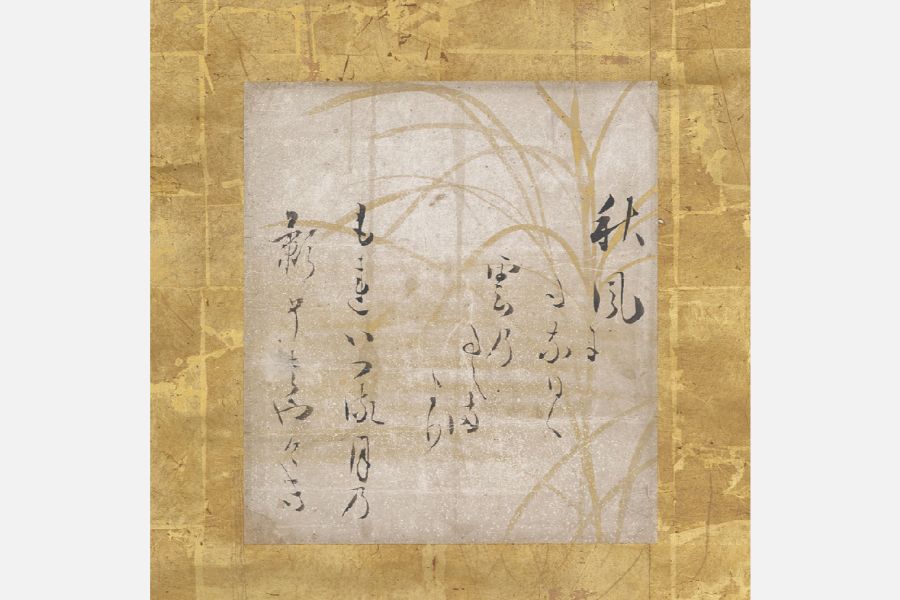 秋風に
たなひく
雲の
たえま
より
もれいつる月の
影のさやけさ